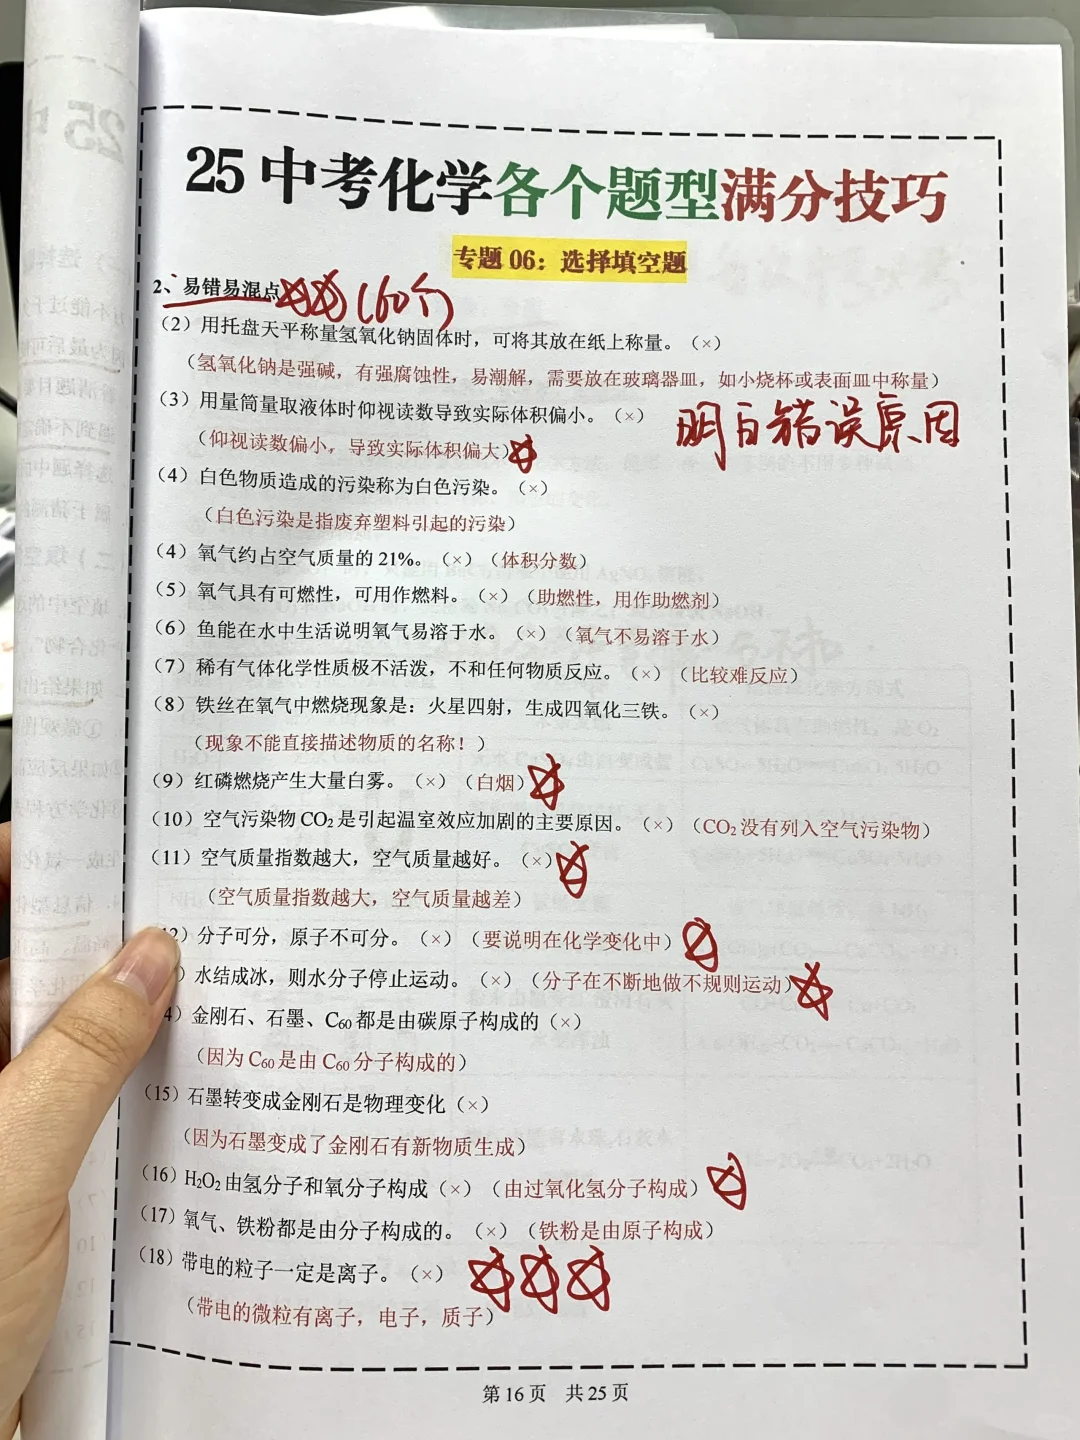 25中考化学各个题型满分技巧
专题 06：选择填空题
2、易错易混点 (60个)
（2）用托盘天平称量氢氧化钠固体时，可将其放在纸上称量。（×）
（氢氧化钠是强碱，有强腐蚀性，易潮解，需要放在玻璃器皿，如小烧杯或表面皿中称量）
（3）用量筒量取液体时仰视读数导致实际体积偏小。（×）
明白错误原因
（仰视读数偏小，导致实际体积偏大）
（4）白色物质造成的污染称为白色污染。（×）
（白色污染是指废弃塑料引起的污染）
（4）氧气约占空气质量的 21%。（×）（体积分数）
（5）氧气具有可燃性，可用作燃料。（×）（助燃性，用作助燃剂）
（6）鱼能在水中生活说明氧气易溶于水。（×）（氧气不易溶于水）
（7）稀有气体化学性质极不活泼，不和任何物质反应。（×）（比较难反应）
（8）铁丝在氧气中燃烧现象是：火星四射，生成四氧化三铁。（×）
（现象不能直接描述物质的名称！）
（9）红磷燃烧产生大量白雾。（×）（白烟）
（10）空气污染物 CO₂ 是引起温室效应加剧的主要原因。（×）（CO₂ 没有列入空气污染物）
（11）空气质量指数越大，空气质量越好。（×）
（空气质量指数越大，空气质量越差）
2）分子可分，原子不可分。（×）（要说明在化学变化中）
）水结成冰，则水分子停止运动。（×）（分子在不断地做不规则运动）
4）金刚石、石墨、C₆₀ 都是由碳原子构成的（×）
（因为 C₆₀ 是由 C₆₀ 分子构成的）
（15）石墨转变成金刚石是物理变化（×）
（因为石墨变成了金刚石有新物质生成）
（16）H₂O₂ 由氢分子和氧分子构成（×）（由过氧化氢分子构成）
（17）氧气、铁粉都是由分子构成的。（×）（铁粉是由原子构成）
（18）带电的粒子一定是离子。（×）
（带电的微粒有离子，电子，质子）
第 16 页 共 25 页